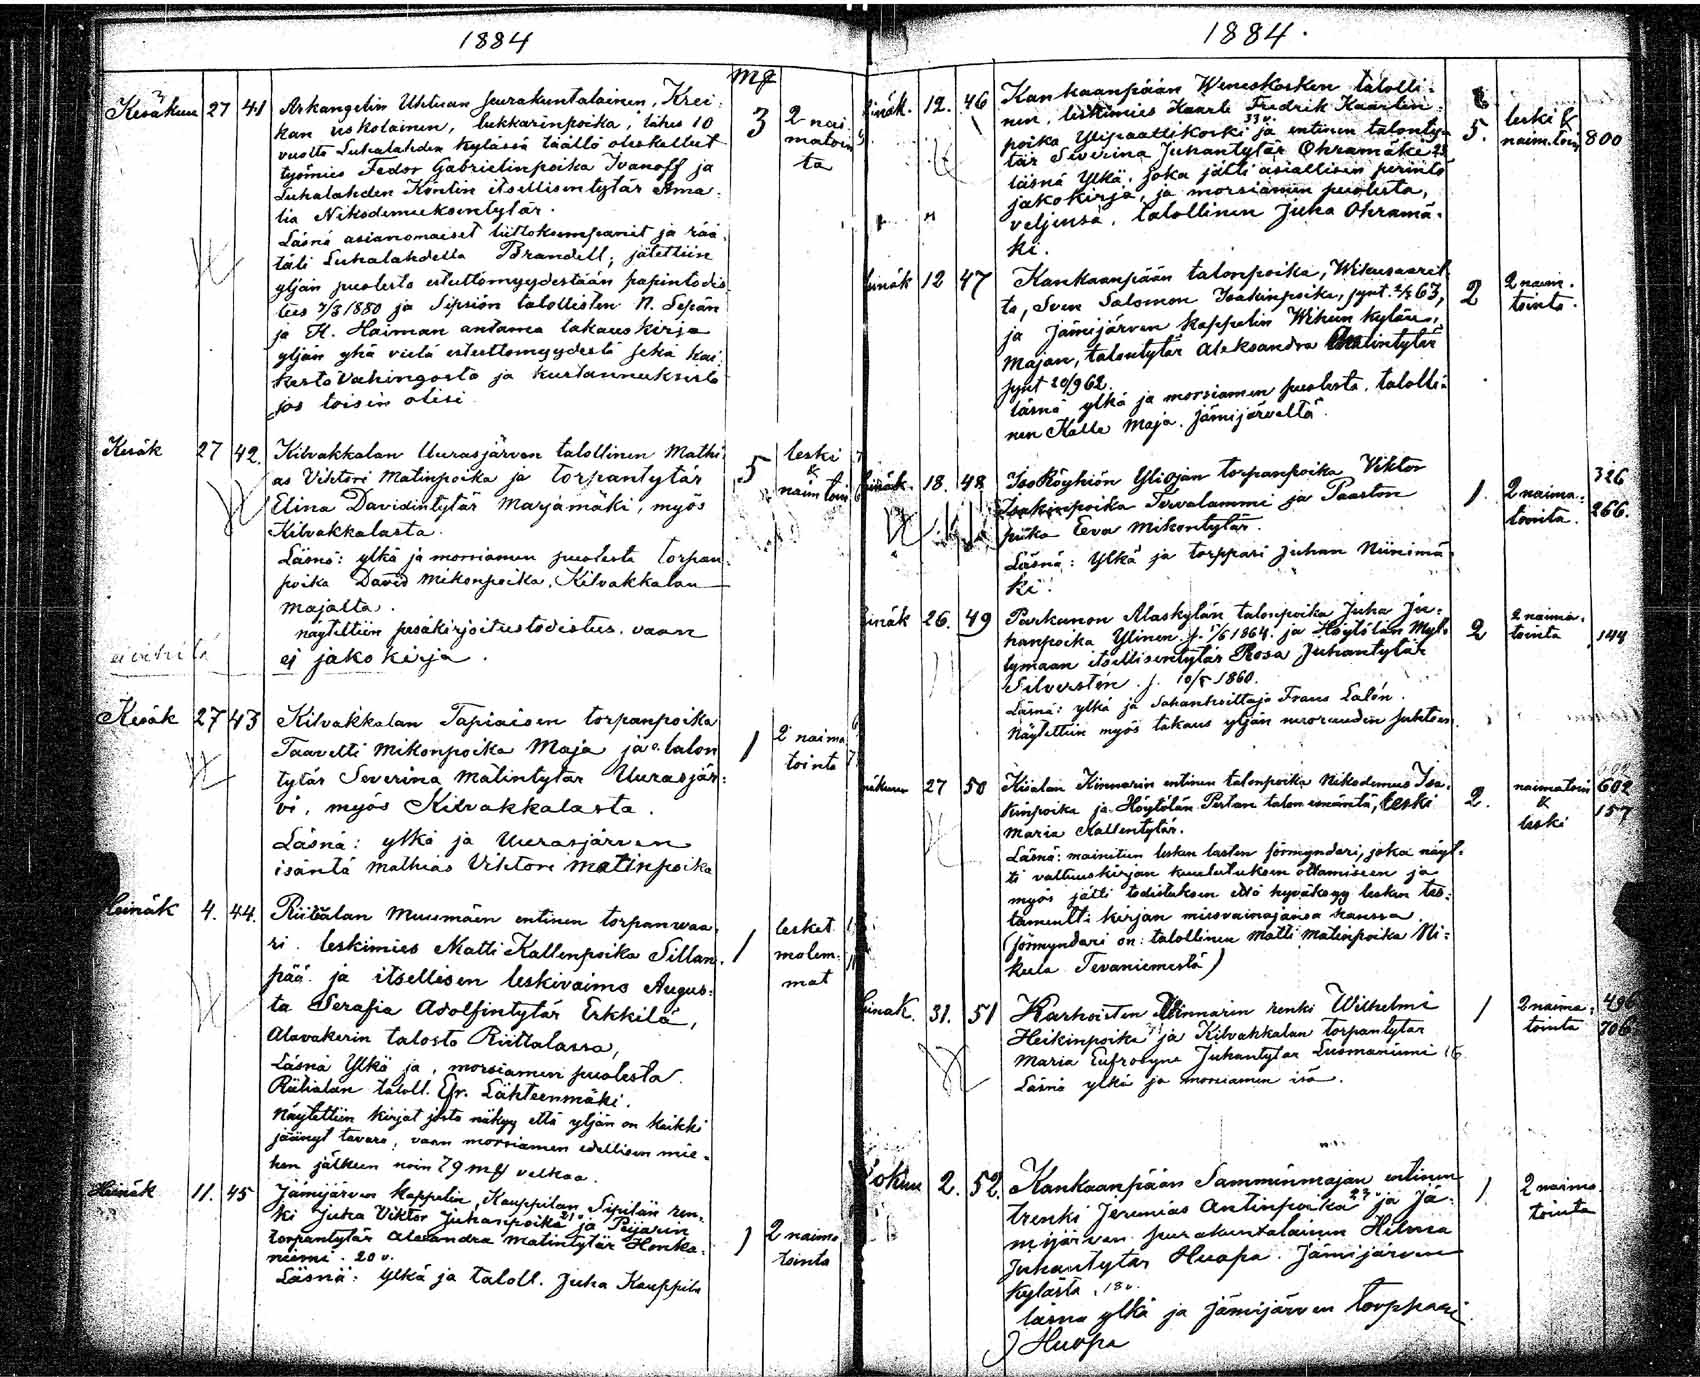 1884
mg
Kesäkuu 27 41 Arkangelin Uhtuan seurakuntalainen, Krei-
kan uskolainen, lukkarinpoika, lähes 10
vuotta Luhalahden kylässä täällä oleskellut
työmies Fedor Gabrielinpoika Ivanoff ja
Luhalahden Köntin itsellisentytär Ama-
lia Nikodemuksentytär.
3 2 nai
matoin
ta
Läsnä asianomaiset liittokumpanit ja rää-
täli Luhalahdella Brandell; jätettiin
yljän puolesta esteettömyydestään papintodis
tus 7/3 1880 ja Sipsiön talollisten N. Sepän
ja K. Haiman antama takauskirja
yljän yhä vielä esteettömyydestä sekä kai
kesta vahingosta ja kustannuksista
jos toisin olisi
Kesäk 27 42. Kilvakkalan Uurasjärven talollinen Mathi
as Vihtori Matinpoika ja torpantytär
Elina Davidintytär Marjamäki, myös
Kilvakkalasta.
5 leski
&
naimtoin
Läsnä: ylkä ja morsiamen puolesta torpan
poika David Mikonpoika, Kilvakkalan
Majalta.
näytettiin pesäkirjoitustodistus. vaan
ej jakokirja.
Kesäk 27 43 Kilvakkalan Tapiaisen torpanpoika
Taavetti Mikonpoika Maja ja talon
tytär Severina Matintytär Uurasjär-
vi, myös Kilvakkalasta.
1 2 naima
tointa
Läsnä: ylkä ja Uurasjärven
isäntä Mathias Vihtori Matinpoika
Heinäk 4. 44. Riitialan Muusmäen entinen torpanvaa-
ri leskimies Matti Kallenpoika Sillan-
pää ja itsellisen leskivaimo Augus-
ta Serafia Adolfintytär Erkkilä,
Alavakerin talosta Riittalassa,
1 lesket
molem-
mat
Läsnä Ylkä ja, morsiamen puolesta
Riitialan taloll. Efr. Lähteenmäki.
Näytettiin kirjat josta näkyy että yljän on kaikki
jäänyt tavara, vaan morsiamen edellisen mie-
hen jälkeen noin 79 mk velkaa.
Heinäk 11. 45 Jämijärven kappelin, Kauppilan Sipilän ren-
ki Juha Viktor Juhanpoika 21 v ja Peijarin
torpantytär Alexandra Matintytär Honka-
niemi. 20 v.
1 2 naima
tointa
Läsnä: ylkä ja taloll. Juha Kauppila
1884.
einäk. 12. 46 Kankaanpään Weneskosken talolli-
nen, leskimies Kaarle Fredrik Kaarlen-
poika Ylipaattikoski 33 v. ja entinen talonty-
tär Severina Juhantytär Ohramäki 25
läsnä Ylkä. Joka jätti asiallisen perintö
jakokirja, ja morsiamen puolesta,
veljensä, talollinen Juha Ohramä-
ki.
5. leski &
naim.toin 800
einäk 12 47 Kankaanpään talonpoika, Wihusaarel
ta, Sven Salomon Isakinpoika, synt. 63,
ja Jämijärven kappelin Wihun kylän,
Majan, talontytär Aleksandra Matintytär
synt 20/9 62.
2 2 naim.
tointa.
läsnä ylkä ja morsiamen puolesta. talolli-
nen Kalle Maja. Jämijärveltä.
einäk. 18. 48 Iso Röyhiön Yliojan torpanpoika Viktor
Isakinpoika Tervalammi ja Paarton
piika Eeva Mikontytär.
1. 2 naima-
tointa. 326
266.
Läsnä: Ylkä ja torppari Juhan Niinimä
ki.
einäk 26. 49 Parkanon Alaskylän talonpoika Juha Ju-
hanpoika Ylinen. s. 1/5 1864. ja Höytölän Myl-
lymaan itsellisentytär Rosa Juhantytär
Silverstén. s. 10/5 1860.
2 2 naima-
tointa 144
Läsnä: ylkä ja Sahankoittaja Frans Salén.
Näytettiin myös takaus yljän nuoruuden suhteen.
27 50 Kiialan Kinnarin entinen talonpoika Nikodemus Isa-
kinpoika ja Höytölän Perttan talon emäntä, leski
Maria Kallentytär.
2. naimatoin 602
& 157
leski
Läsnä: mainitun lesken lasten förmyndari, joka näyt-
ti valtuuskirjan kuulutuksen ottamiseen ja
myös jätti todistuksen että hyväksyy lesken tes-
tamentti kirjan miesvainajansa kanssa.
(förmyndari on: talollinen Matti Matinpoika Ni-
kula Tevaniemestä)
einäk. 31. 51 Karhoisten Kinnarin renki Wilhelmi
Heikinpoika ja Kilvakkalan torpantytär
Maria Eufrosyne Juhantytär Lusmaniemi
1 2 naima-
tointa 496
706
Läsnä ylkä ja morsiamen isä.
lokuu 2. 52. Kankaanpään Samminmajan entinen
trenki Jeremias Antinpoika 23 v ja Jä-
mijärven seurakuntalainen Hilma
Juhantytär Huopa. Jämijärven
kylästä, 18 v.
1 2 naima
tointa
läsnä ylkä ja Jämijärven torppari
J Huopa